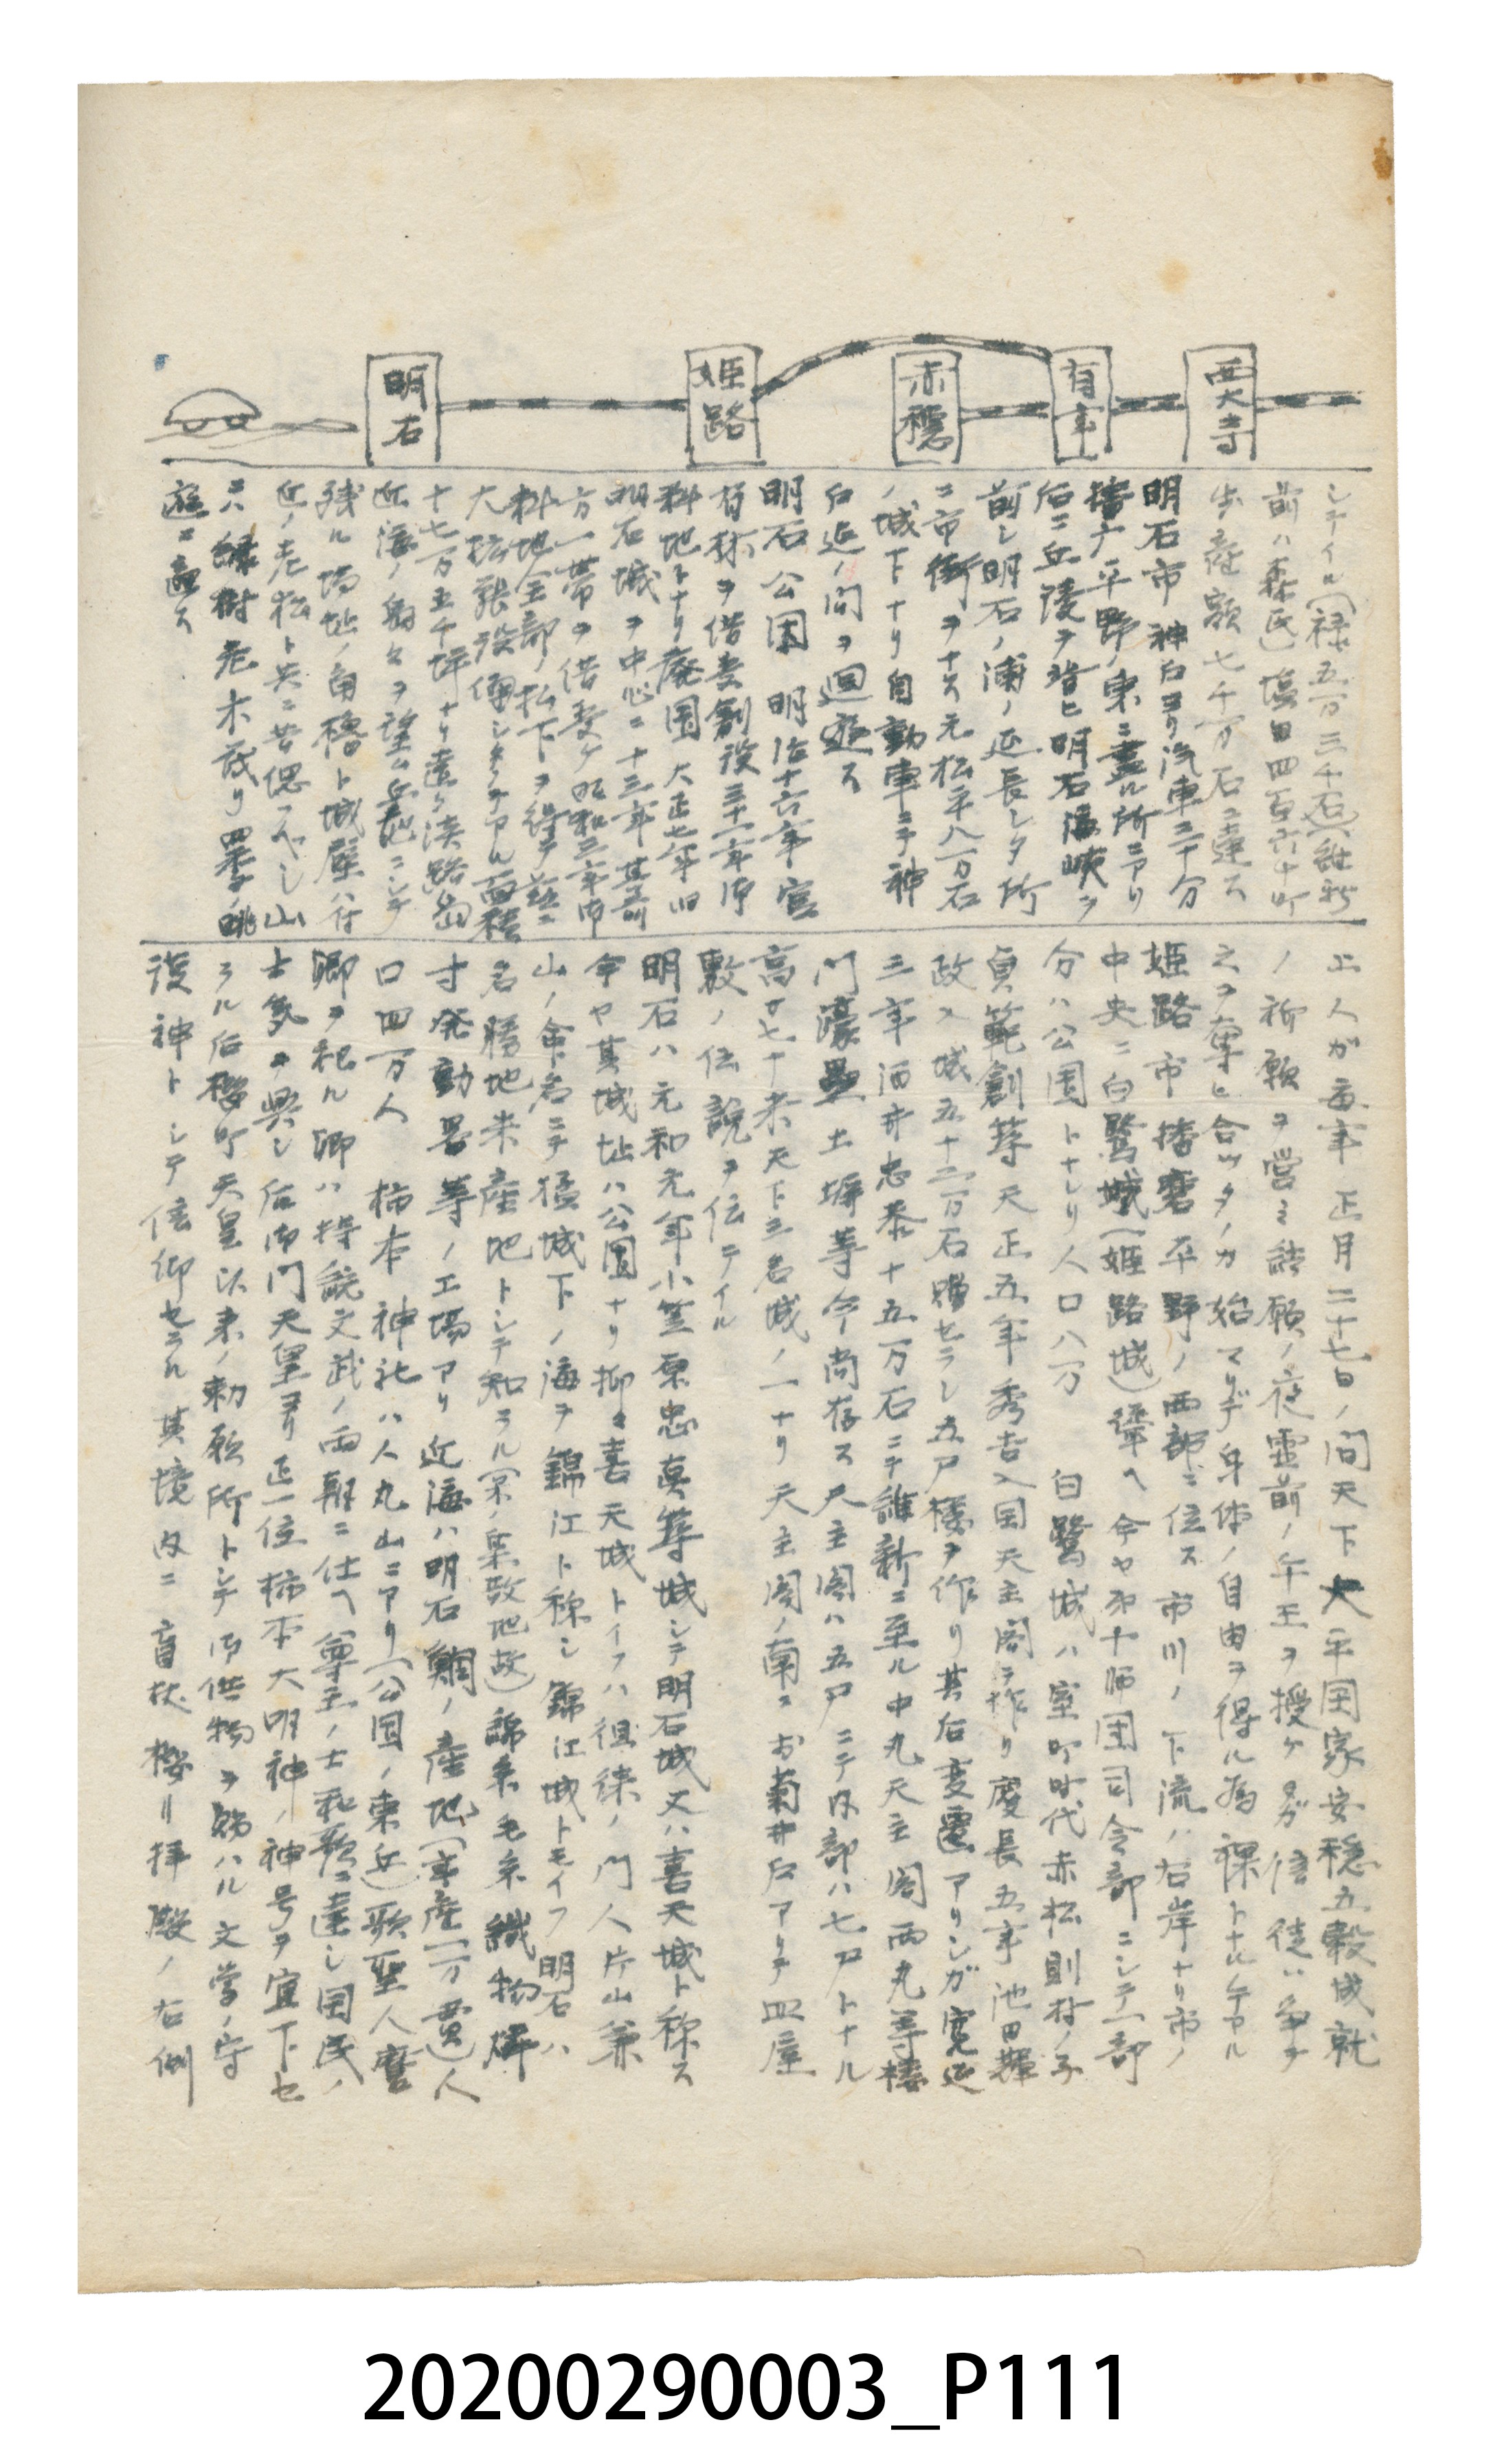 西大寺
有年
赤穂
姫路
明石
シテイル(禄五万三千石)維新
前ハ森氏)塩田四百六十町
歩産額七千万石ニ達ス
明石市 神戸ヨリ汽車三十分
播广平野ノ東ニ盡ル所ニアリ
后ニ丘陵ヲ背ヒ明石海峡ヲ
前シ明石ノ浦ノ延長シタ所
ニ市街ヲナス元松平八万石
ノ城下ナリ自動車ニテ神
戸迄ノ間ヲ回遊ス
明石公園 明治十六年官
有林ヲ借受創設三十一年御
料地トナリ廃園 大正七年旧
明石城ヲ中心ニ十三年其前
方一帯ヲ借受ケ昭和三年御
料地全部ノ払下ヲ得テ茲ニ
大拡張設備シタテアル面積
十七万五千坪ナリ遠ク淡路島
近海ノ舟々ヲ望ム丘地ニシテ
残ル場址ノ角櫓ト城壁ハ付
近ノ老松ト共ニ昔偲ベシ山
ニハ緑樹老木茂リ四季ノ眺
遊ニ適ス
上人ガ毎年正月二十七日ノ間天下大平国家安穏五穀成就
ノ祈願ヲ営ミ結願ノ夜霊前ノ午王ヲ授ケ多ガ信徒ハ争テ
之ヲ奪ヒ合ツタノカ始マリデ身体ノ自由ヲ得ル為裸トナルニ至ル
姫路市 播磨平野ノ西部ニ位ス市川ノ下流ノ右岸ナリ市ノ
中央ニ白鷺城(姫路城)聳ヘ今ヤ第十師団司令部ニシテ一部
分ハ公園トナレリ人口八万 白鷺城ハ室町時代赤松則村ノ子
貞範創築天正五年秀吉入国天主閣ヲ作リ慶長五年池田輝
政入城五十二万石贈セラレ五戸楼ヲ作リ其后変遷アリシガ寛延
三年酒井忠恭十五万石ニテ維新ニ至ル中丸天主閣両丸等楼
門濠塁土塀等今尚存ス天主閣ハ五戸ニテ内部ハ七戸トナル
高サ七十米天下三名城ノ一ナリ天主閣ノ南ニお菊井戸アリテ皿屋
敷ノ伝説ヲ伝テイル
明石ハ元和元年小笠原忠真築城シテ明石城又ハ喜天城ト称ス
今ヤ其城址ハ公園ナリ抑々喜天城トイフハ徂徠ノ門人片山兼
山ノ命名ニテ猛城下ノ海ヲ錦江ト称シ錦江城トモイフ明石ハ
名勝地米産地トシテ知ラル(米ノ集散地故)綿糸毛糸織物燐
寸発動器等ノ工場アリ近海ハ明石鯛ノ産地(年産一万貫)人
口四万人 柿本神社ハ人丸山ニアリ(公園ノ東丘)歌聖人麿
卿ヲ祀ル卿ハ持統文武ノ両朝ニ仕ヘ尊王ノ士和歌ニ達シ国民ノ
士気ヲ興シ后御門天皇ヨリ正一位柿本大明神ノ神号ヲ宣下セ
ラル后桜町天皇以来ノ勅願所トシテ御供物ヲ賜ハル文学ノ守
護神トシテ信仰セラル其境内ニ盲杖桜リ拝殿ノ右側
20200290003_P111